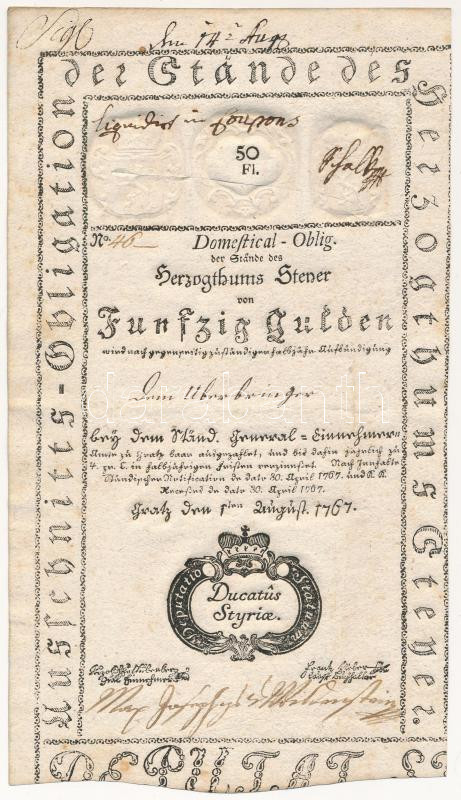 den 14ᵗ Aug
der Stände des
Ausschnitts-Obligation
Herzogthums Steyer.
liquidirt in Coupons
50
Fl.
Nº 46
Domestical-Oblig.
der Stände des
Herzogthums Steyer
von
Funfzig Gulden
wird nach gegenseitig zuständigen halbjähr. Aufkündigung
Dem Uberbringer
bey dem Ständ. General=Einnehmer=
Amte zu Gratz baar ausgezahlet, und bis dahin jährlich zu
4. zu C. in halbjährigen Fristen verzinnset. Nach Innhalte
Ständischer Notification de dato 30. April 1767. und K. K.
Recessus de dato 30. April 1767.
Gratz den 1ten August 1767.
Deputatio Statuum
Ducatûs
Styriæ.
DEPUTAT